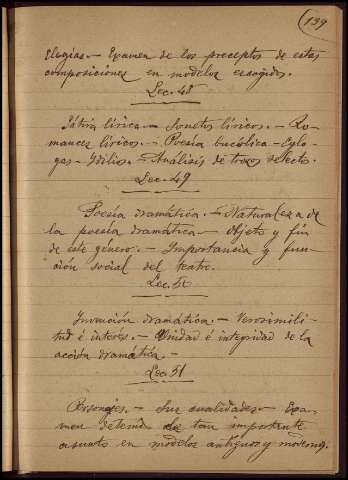 139
Elegías.— Examen de los preceptos de estas
composiciones en modelos escogidos.
Lec. 48
Sátira lírica.— Sonetos líricos.— Ro-
mances líricos.— Poesía bucólica— Églo-
gas— Idilios.— Análisis de trozos selectos.
Lec. 49
Poesía dramática.— Naturaleza de
la poesía dramática— Objeto y fin
de este género.— Importancia y fun-
ción social del teatro.
Lec. 50
Invención dramática.— Verosimili-
tud é interés.— Unidad é integridad de la
acción dramática.—
Lec. 51
Personajes.— Sus cualidades.— Exa-
men de tan importante
asunto en modelos antiguos y modernos.